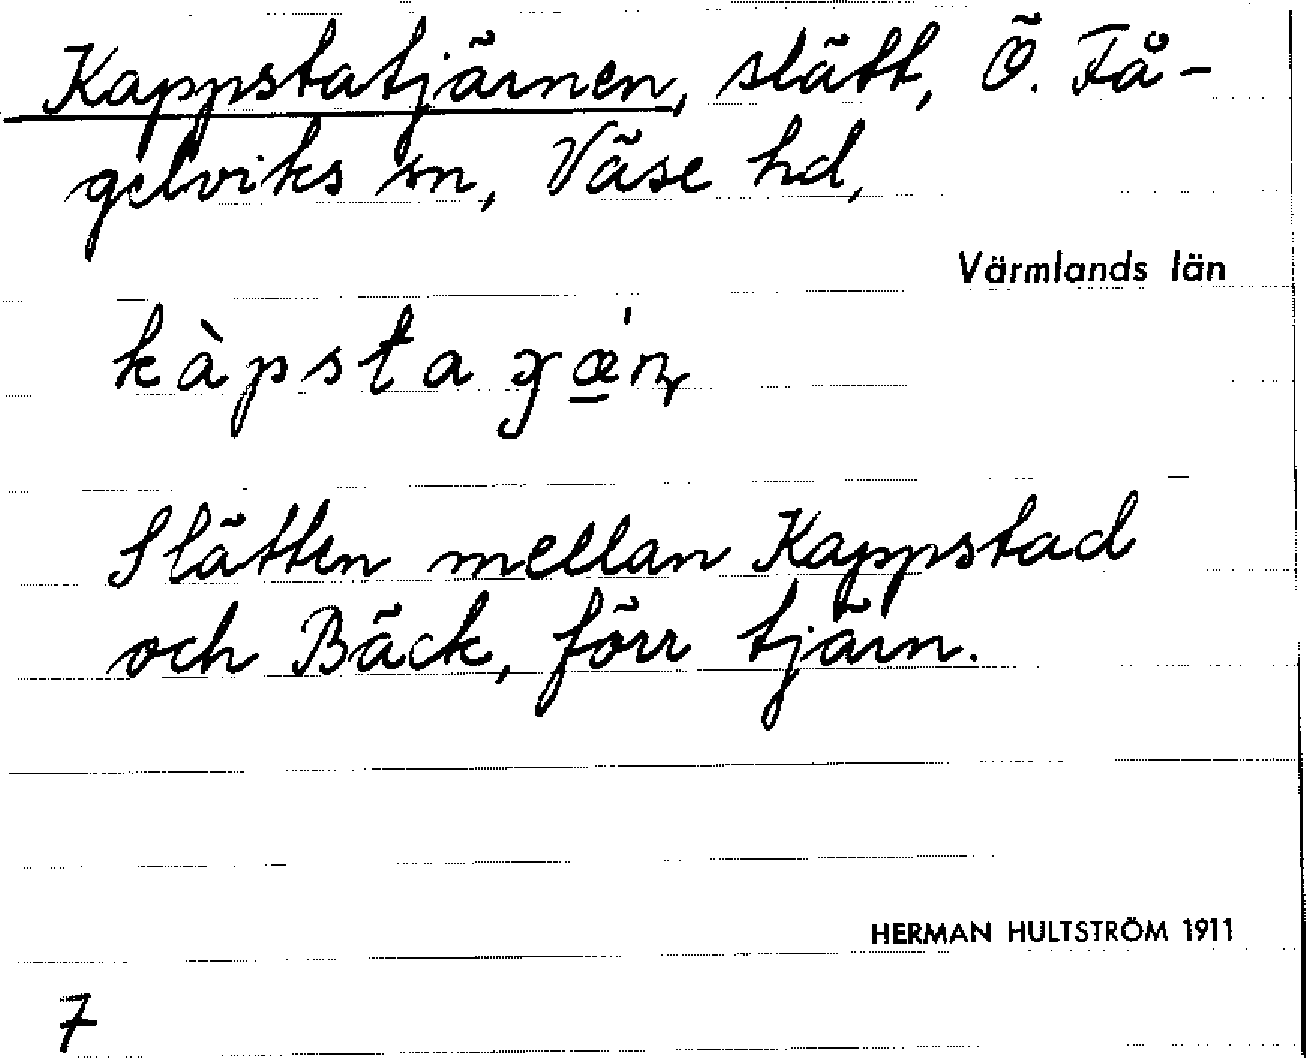 Kappstatjärnen, slätt, Ö. Få-
gelviks sn, Väse hd,
Värmlands län
Slätten mellan Kappstad
och Bäck, förr tjärn.
HERMAN HULTSTRÖM 1911
7